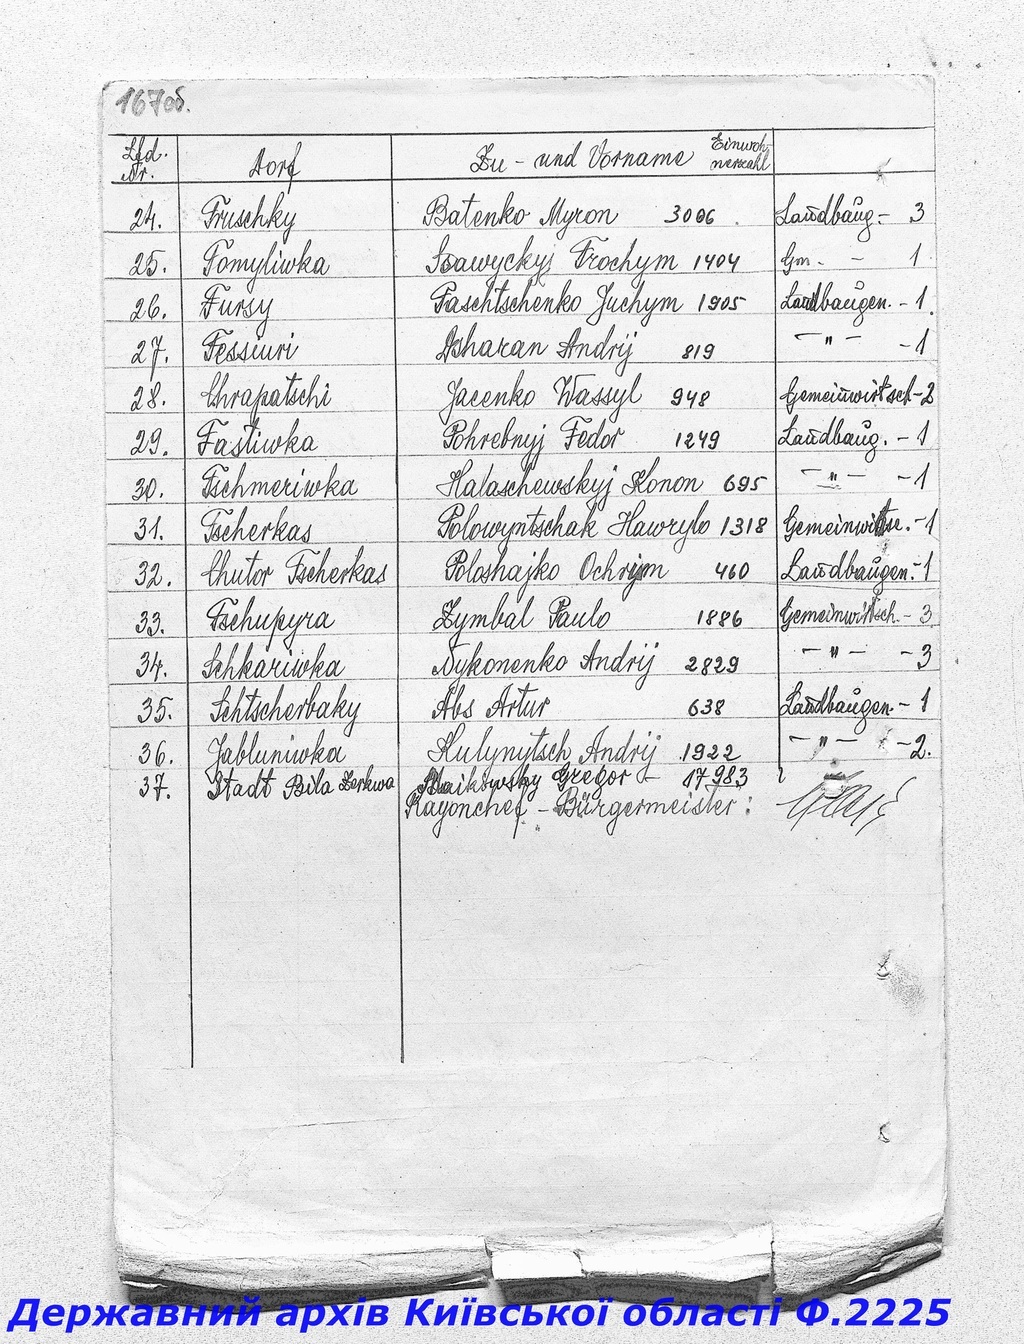 167об.
Lfd. Nr. Dorf Zu - und Vorname Einwoh- nerzahl
24. Truschky Batenko Myron 3006 Landbaug. - 3
25. Tomyliwka Ssawyckyj Trochym 1404 Gm. - 1
26. Fursy Taschtschenko Juchym 1905 Landbaugen. - 1
27. Fessiuri Dsharan Andrij 819 - " - - 1
28. Chrapatschi Jacenko Wassyl 948 Gemeinwirtsch - 2
29. Fastiwka Pohrebnyj Fedor 1249 Landbaug. - 1
30. Tschmeriwka Halaschewskyj Konon 695 - " - - 1
31. Tscherkas Polowyntschak Hawrylo 1318 - 1
32. Chutor Tscherkas Poloshajko Ochrim 460 Landbaugen. - 1
33. Tschupyra Zymbal Paulo 1886 Gemeinwirtsch. - 3
34. Schkariwka Nykonenko Andrij 2829 - " - - 3
35. Schtscherbaky Abs Artur 638 Landbaugen - 1
36. Jabluniwka Kulynytsch Andrij 1922 - " - - 2.
37. Stadt Bila Zerkwa Gregor - 17983
Rayonchef - Bürgermeister:
Державний архів Київської області Ф.2225